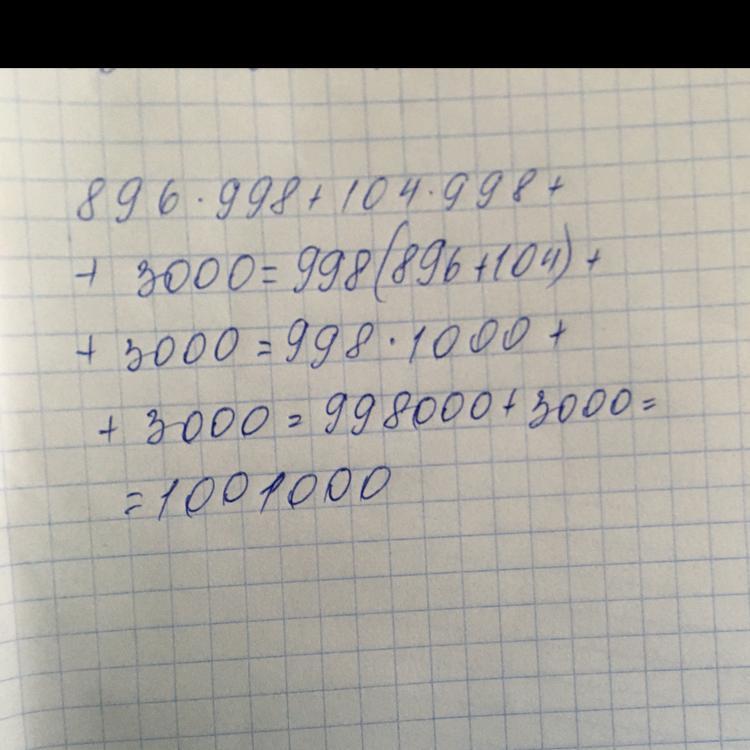 896·998+104·998+
+ 3000=998(896+104)+
+ 3000=998·1000+
+ 3000=998000+3000=
=1001000